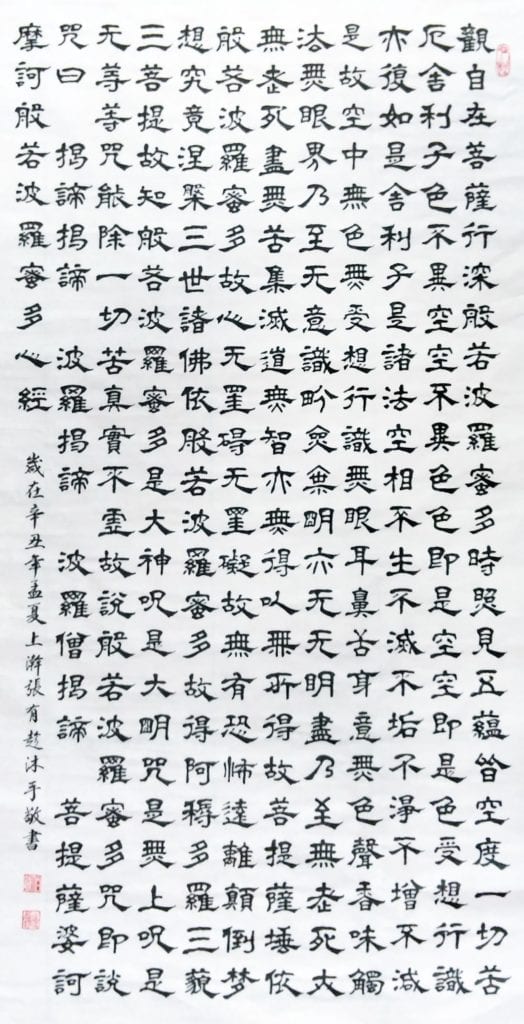 觀自在菩薩行深般若波羅蜜多時照見五蘊皆空度一切苦
厄舍利子色不異空空不異色色即是空空即是色受想行識
亦復如是舍利子是諸法空相不生不滅不垢不淨不增不減
是故空中無色無受想行識無眼耳鼻舌身意無色聲香味觸
法無眼界乃至无意識畍無無明亦无无明盡乃至無老死亦
無老死盡無苦集滅道無智亦無得以無所得故菩提薩埵依
般若波羅蜜多故心无罣碍无罣礙故無有恐怖遠離顛倒梦
想究竟涅槃三世諸佛依般若波羅蜜多故得阿耨多羅三藐
三菩提故知般若波羅蜜多是大神呪是大明咒是無上呪是
无等等咒能除一切苦真實不虛故說般若波羅蜜多咒即說
咒曰 揭諦揭諦 波羅揭諦 波羅僧揭諦 菩提薩婆訶
摩訶般若波羅蜜多心經
歲在辛丑年孟夏上澣張有沐手敬書